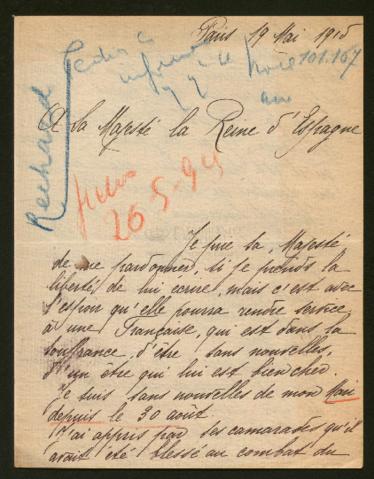 Paris 19 Mai 1915
101.167
A la Majesté la Reine d'Espagne
Rechard
26-5-
Je prie sa Majesté
de me pardonner, si je prends la
liberté, de lui écrire, mais c'est avec
l'espoir qu'elle pourra rendre service
à une Française, qui est dans la
souffrance, d'être, sans nouvelles,
d'un être qui lui est bien cher.
Je suis sans nouvelles de mon Mari
depuis le 30 aout.
J'ai appris par ses camarades qu'il
avait été blessé au combat du